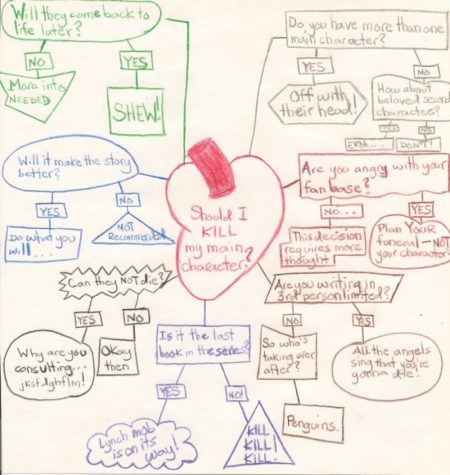 Will they come back to
life later?
NO
YES
More info
NEEDED
SHEW!
Do you have more than one
main character?
YES
NO
Off with
their head!
How about
beloved second
characters?
YES
NO
ERM...
DON'T!
Will it make the story
better?
YES
NO
Do what you
will....
NOT
Recommended
Should I
KILL
my main
character?
Are you angry with your
fan base?
NO...
YES
This decision
requires more
thought!
Plan YOUR
funeral - NOT
your character!
Can they NOT die?
YES
NO
Why are you
consulting...
Okay
then
Is it the last
book in the series?
YES
NO!
Lynch mob
is on its
way!
KILL
KILL!
KILL.
Are you writing in
3rd person limited?
NO
YES
So who's
taking over
after?
Penguins.
All the angels
sing that you're
gonna die!